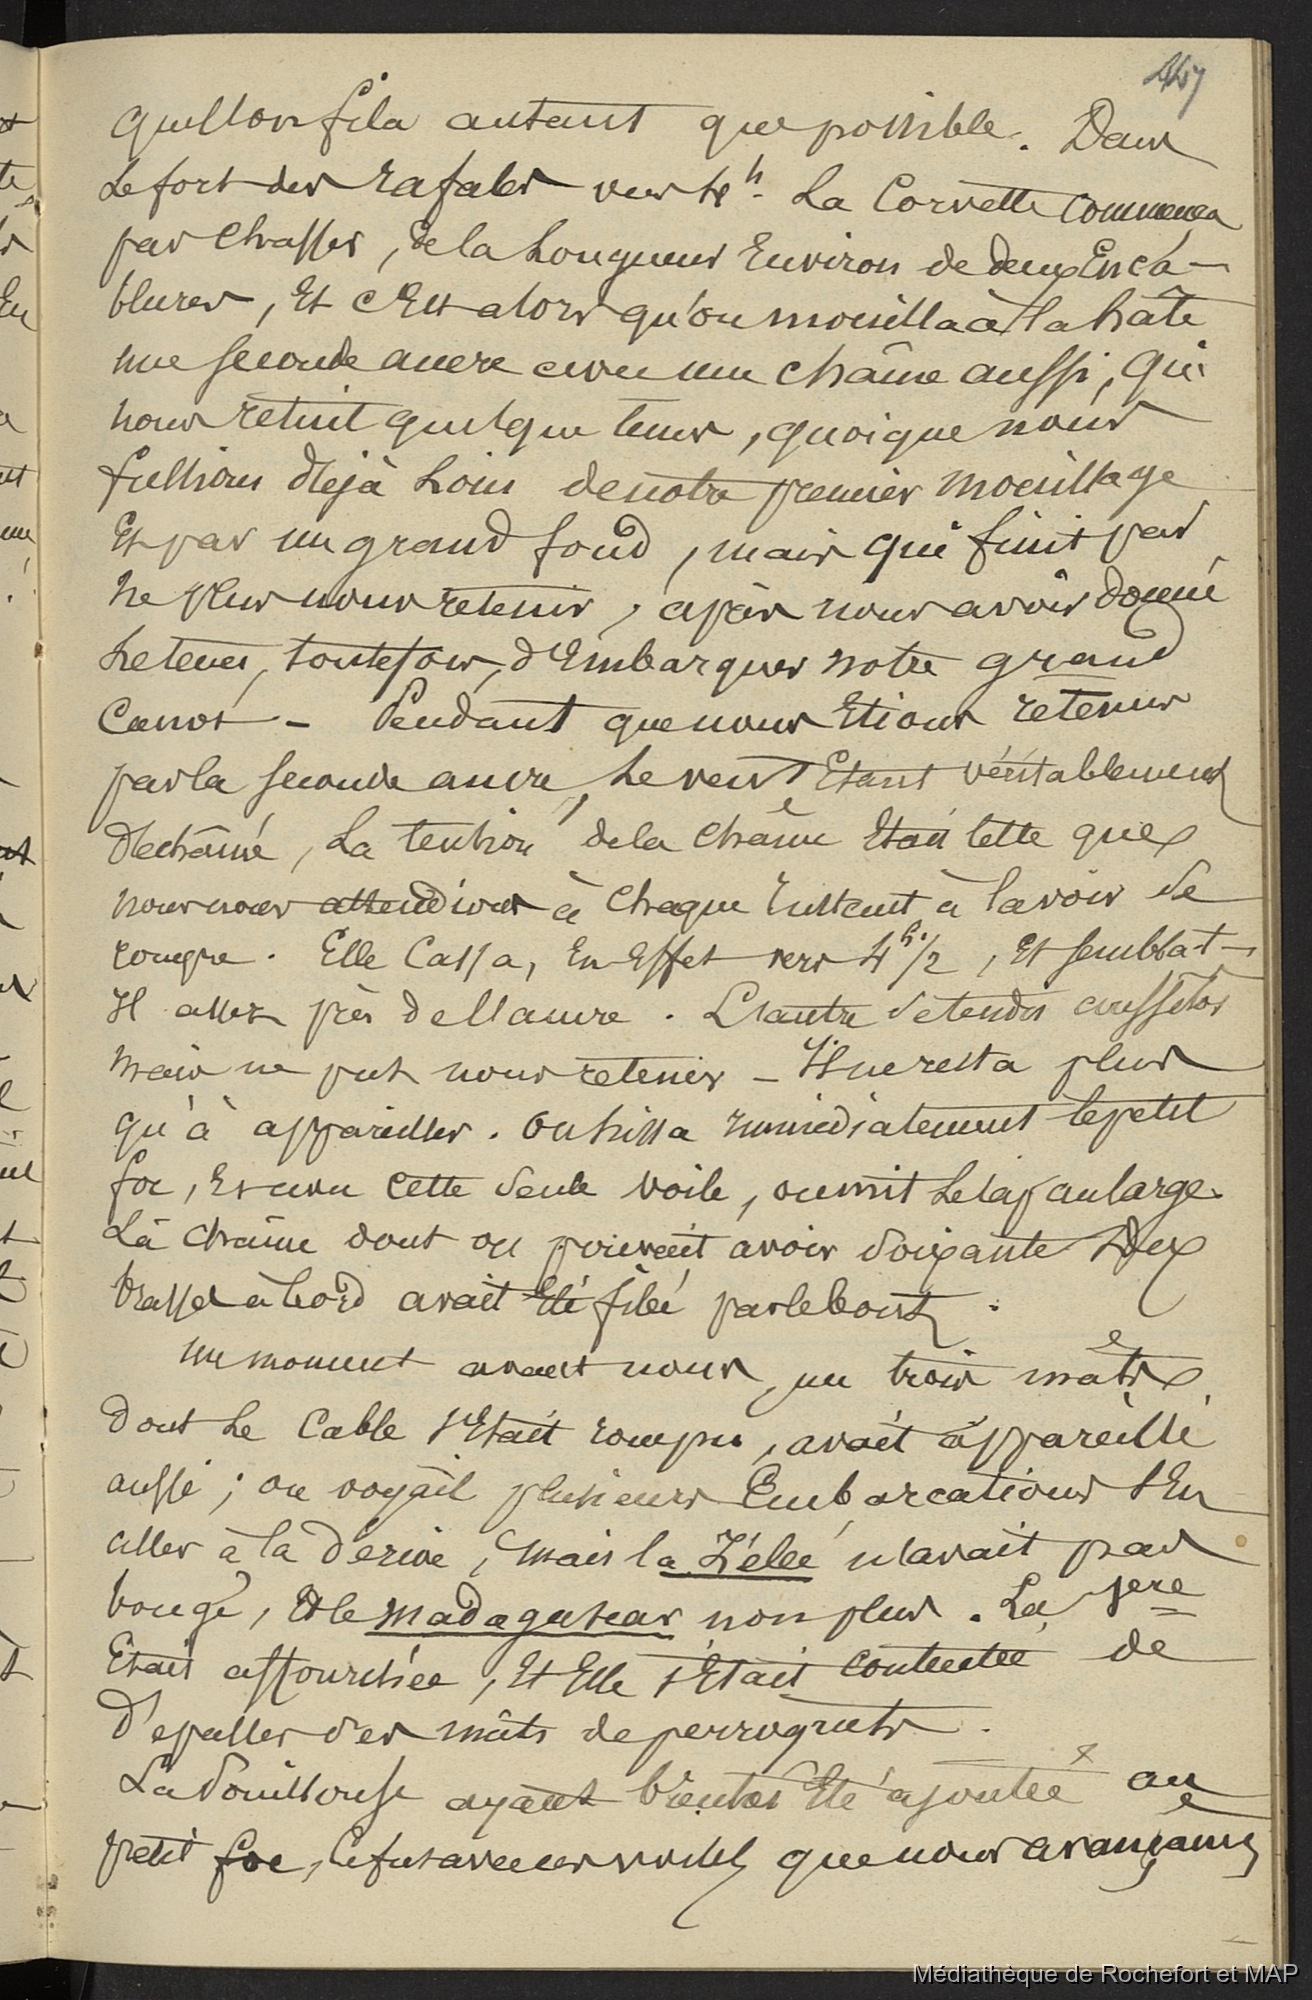 447
qu'on fila autant que possible. Dans
le fort des rafales vers 4h. La Corvette commença
par chasser, de la longueur environ de deux enca-
blures, et c'est alors qu'on mouilla à la hâte
une seconde ancre avec une chaîne aussi, qui
nous retint quelque tems, quoique nous
fussions déjà loin de notre premier mouillage
et par un grand fond, mais qui finit par
ne plus nous retenir, après nous avoir donné
le tems, toutefois, d'embarquer notre grand
canot – Pendant que nous étions retenus
par la seconde ancre, le vent étant véritablement
déchaîné, la tension de la chaîne était telle que
nous nous attendions à chaque instant à la voir se
rompre. Elle cassa, en effet vers 4h. 1/2, et sembla-t-
il assez près de l'ancre. L'autre s'étendit aussitôt
mais ne put nous retenir – Il ne resta plus
qu'à appareiller. on hissa immédiatement le petit
foc, et avec cette seule voile, on mit le cap au large.
La chaîne dont on pouvait avoir soixante dix
brasses à bord avait été filée par le bout.
un moment avant nous, un trois mâts
dont le cable s'était rompu, avait appareillé
aussi; on voyait plusieurs embarcations s'en
aller à la dérive, mais la Zélée n'avait pas
bougé, et le Madagascar non plus. La 1ere
était affourchée, et elle s'était contentée de
dépasser ses mâts de perroquets.
La Pouillouse ayant bientôt été ajoutée au
petit foc, ce fut avec ces voiles que nous avançames
Médiathèque de Rochefort et MAP